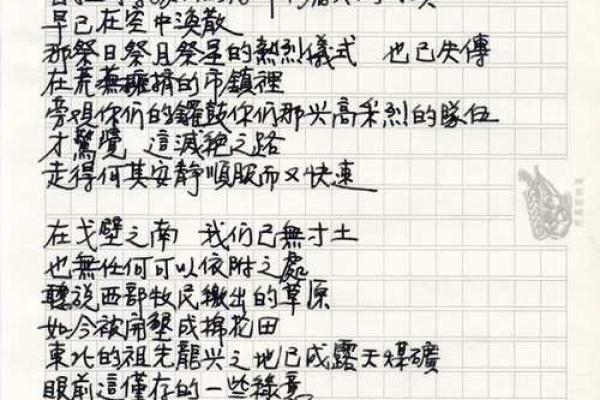 早已在空中渙散
那祭日祭月祭星的熱烈儀式　也已失傳
在荒蕪擁擠的市鎮裡
旁觀你們的鑼鼓你們那興高采烈的隊伍
才驚覺　這滅絕之路
走得何其安靜順服而又快速
在戈壁之南　我們已無寸土
也無任何可以依附之處
聽說西部牧民繳出的草原
如今被開墾成棉花田
東北的祖先龍兴之地已成露天煤礦
眼前這僅存的一些綠意